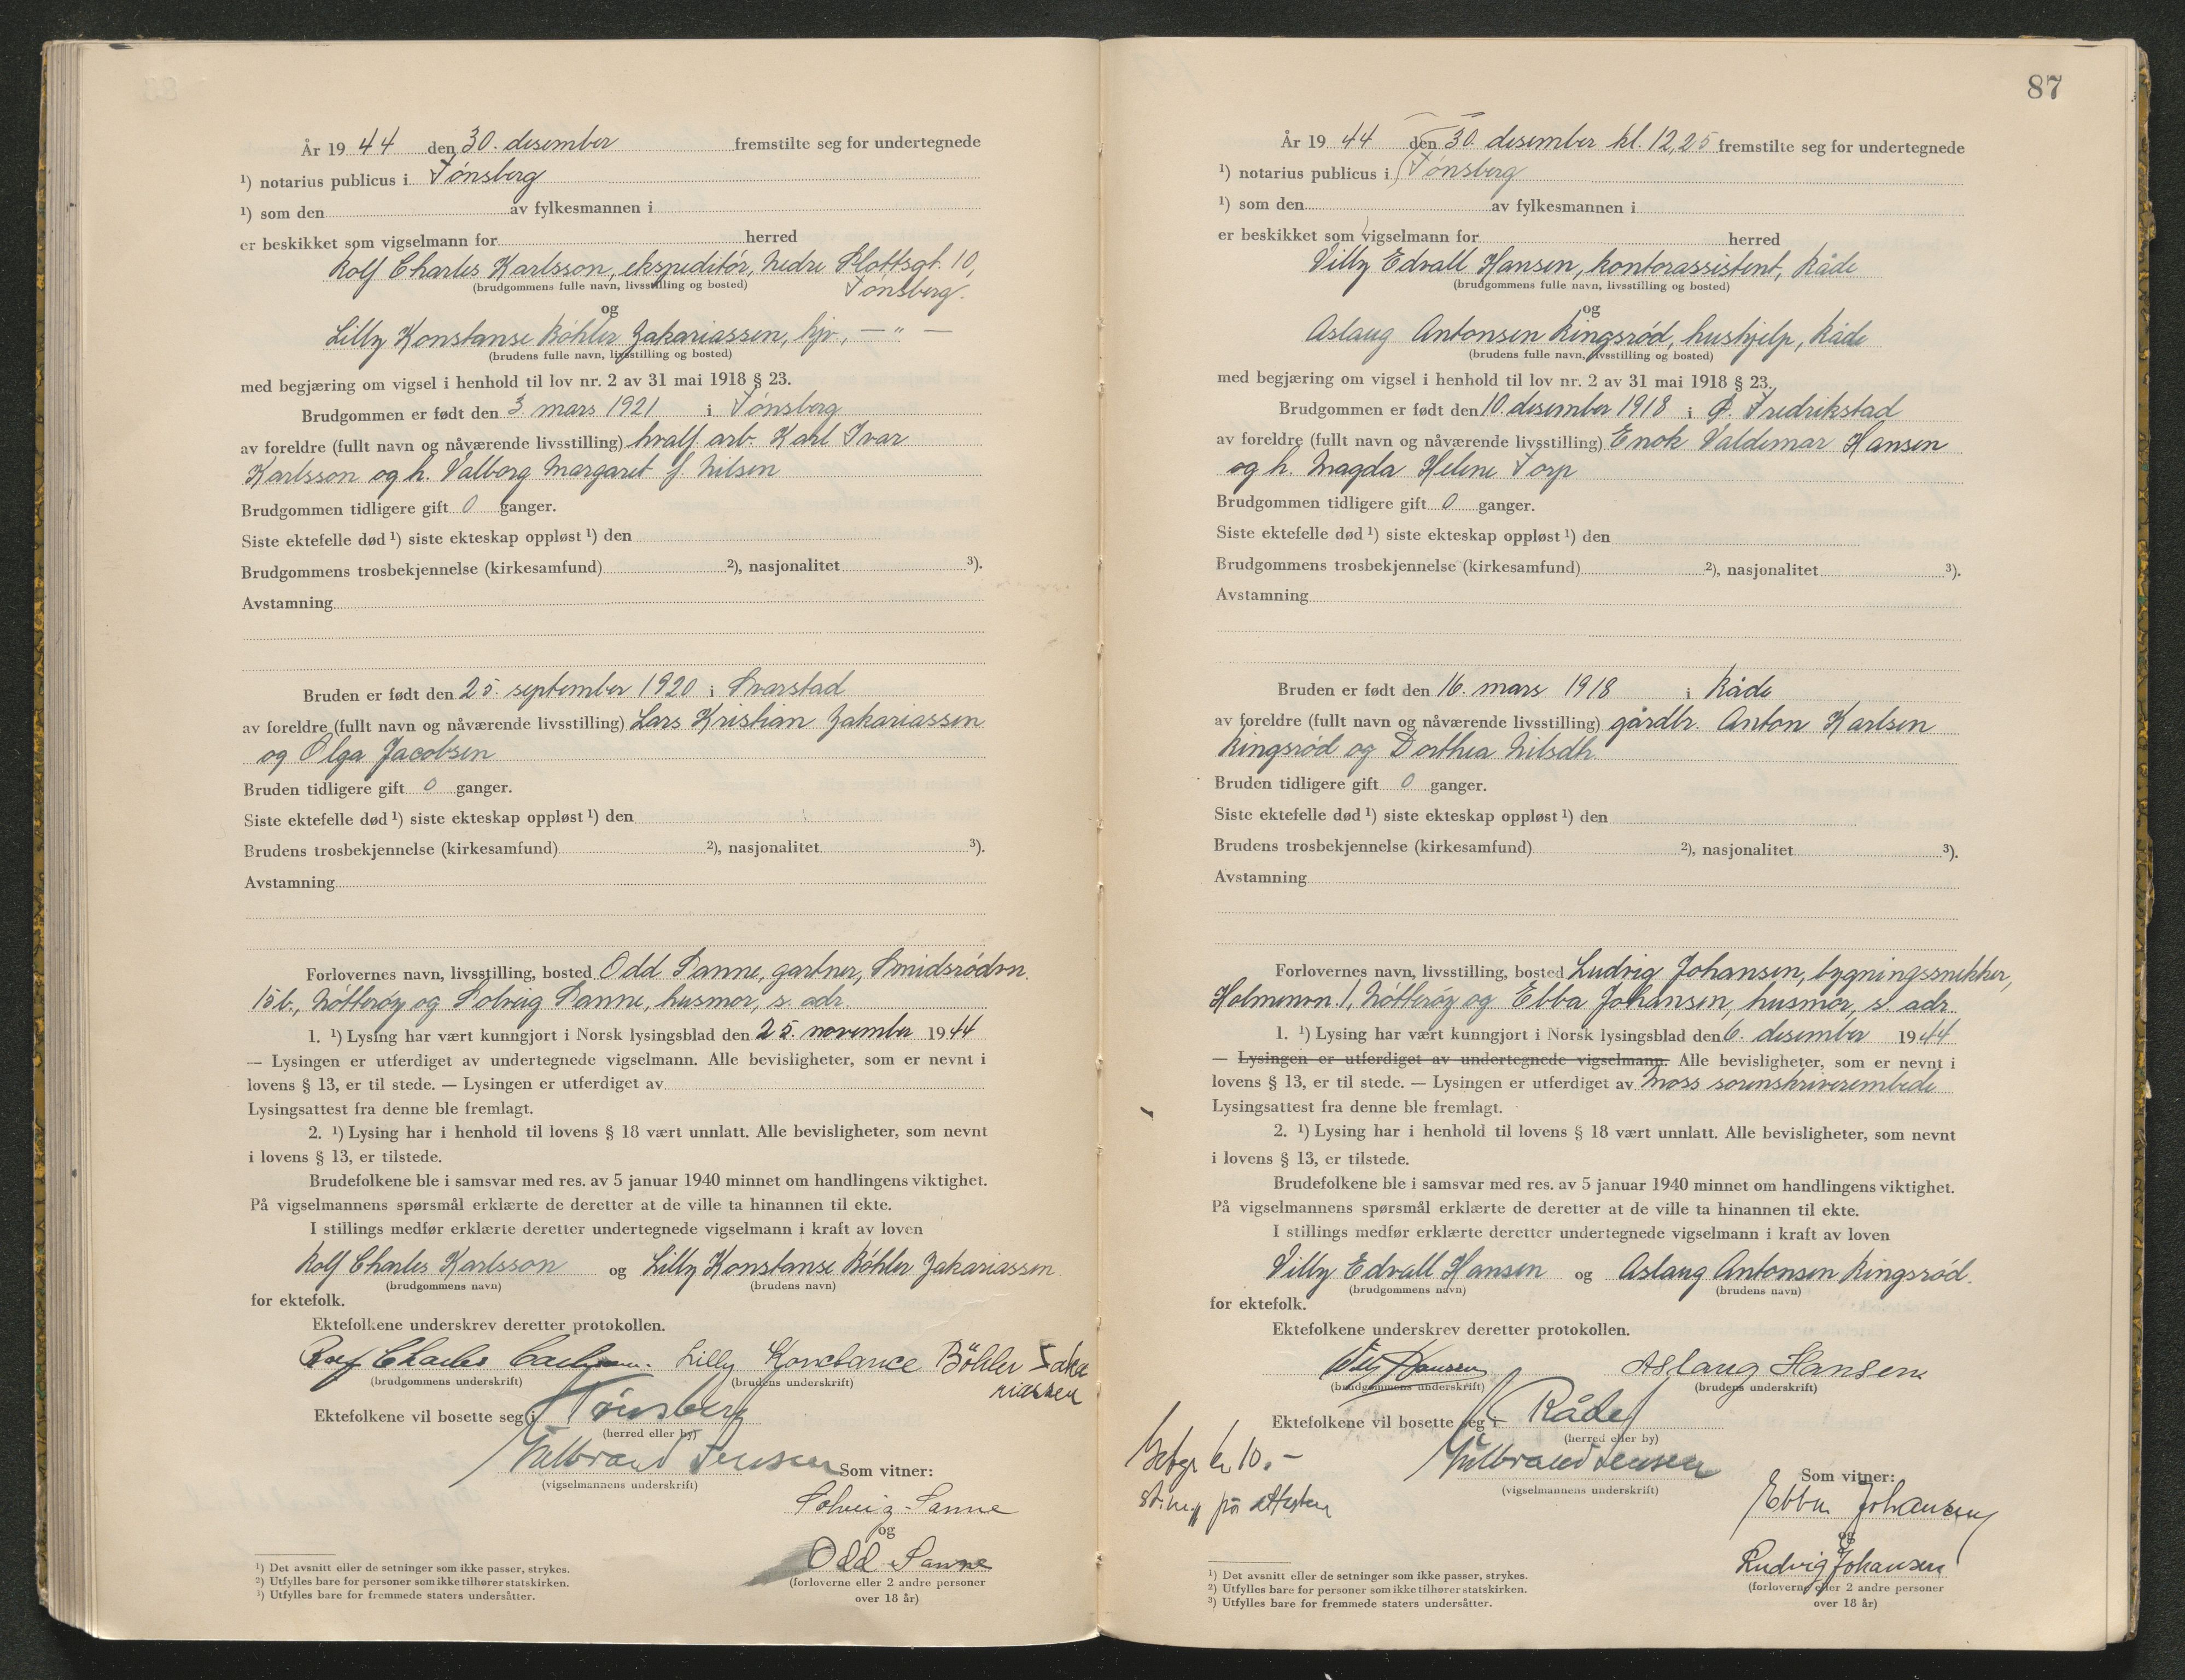 År 19 44 den 30. desember fremstilte seg for undertegnede
¹) notarius publicus i Tønsberg
¹) som den av fylkesmannen i
er beskikket som vigselmann for herred
Rolf Charles Karlsson, ekspeditör, Nedre Slottsgt. 10,
(brudgommens fulle navn, livsstilling og bosted) Tønsberg.
og
Lilly Konstanse Böhler Zakariassen, hjv., — " —
(brudens fulle navn, livsstilling og bosted)
med begjæring om vigsel i henhold til lov nr. 2 av 31 mai 1918 § 23.
Brudgommen er født den 3. mars 1921 i Tønsberg
av foreldre (fullt navn og nåværende livsstilling) hvalf. arb. Karl Ivar
Karlsson og h. Valborg Margaret f. Nilsen
Brudgommen tidligere gift 0 ganger.
Siste ektefelle død ¹) siste ekteskap oppløst ¹) den
Brudgommens trosbekjennelse (kirkesamfund) ²), nasjonalitet ³).
Avstamning
Bruden er født den 25. september 1920 i Svarstad
av foreldre (fullt navn og nåværende livsstilling) Lars Kristian Zakariassen
og Olga Jacobsen
Bruden tidligere gift 0 ganger.
Siste ektefelle død ¹) siste ekteskap oppløst ¹) den
Brudens trosbekjennelse (kirkesamfund) ²), nasjonalitet ³).
Avstamning
Forlovernes navn, livsstilling, bosted Odd Sanne, gartner, Smidsrödvn.
15b., Nötteröy og Solveig Sanne, husmor, s. adr.
1. ¹) Lysing har vært kunngjort i Norsk lysingsblad den 25. november 1944
— Lysingen er utferdiget av undertegnede vigselmann. Alle bevisligheter, som er nevnt i
lovens § 13, er til stede. — Lysingen er utferdiget av
Lysingsattest fra denne ble fremlagt.
2. ¹) Lysing har i henhold til lovens § 18 vært unnlatt. Alle bevisligheter, som nevnt
i lovens § 13, er tilstede.
Brudefolkene ble i samsvar med res. av 5 januar 1940 minnet om handlingens viktighet.
På vigselmannens spørsmål erklærte de deretter at de ville ta hinannen til ekte.
I stillings medfør erklærte deretter undertegnede vigselmann i kraft av loven
Rolf Charles Karlsson og Lilly Konstanse Böhler Zakariassen
(brudgommens navn) (brudens navn)
for ektefolk.
Ektefolkene underskrev deretter protokollen.
Rolf Charles Lilly Konstance Böhler Zaka
(brudgommens underskrift) (brudens underskrift) riassen
Ektefolkene vil bosette seg i Tönsberg
(herred eller by)
Gulbrand Jensen Som vitner:
(vigselmannens underskrift)
Solveig Sanne
og
Odd Sanne
(forloverne eller 2 andre personer
over 18 år)
¹) Det avsnitt eller de setninger som ikke passer, strykes.
²) Utfylles bare for personer som ikke tilhører statskirken.
³) Utfylles bare for fremmede staters undersåtter.
87
År 19 44 den 30. desember kl. 12,25 fremstilte seg for undertegnede
¹) notarius publicus i Tønsberg
¹) som den av fylkesmannen i
er beskikket som vigselmann for herred
Villy Edvall Hansen, kontorassistent, Råde
(brudgommens fulle navn, livsstilling og bosted)
og
Aslaug Antonsen Ringsrød, hushjelp, Råde
(brudens fulle navn, livsstilling og bosted)
med begjæring om vigsel i henhold til lov nr. 2 av 31 mai 1918 § 23.
Brudgommen er født den 10. desember 1918 i Ø. Fredrikstad
av foreldre (fullt navn og nåværende livsstilling) Enok Valdemar Hansen
og h. Magda Helene Torp
Brudgommen tidligere gift 0 ganger.
Siste ektefelle død ¹) siste ekteskap oppløst ¹) den
Brudgommens trosbekjennelse (kirkesamfund) ²), nasjonalitet ³).
Avstamning
Bruden er født den 16. mars 1918 i Råde
av foreldre (fullt navn og nåværende livsstilling) gårdbr. Anton Karlsen
Ringsrød og Dorthea Nilsdtr.
Bruden tidligere gift 0 ganger.
Siste ektefelle død ¹) siste ekteskap oppløst ¹) den
Brudens trosbekjennelse (kirkesamfund) ²), nasjonalitet ³).
Avstamning
Forlovernes navn, livsstilling, bosted Ludvig Johansen, bygningssnekker,
Holmenvn. 1, Nötteröy og Ebba Johansen, husmor, s. adr.
1. ¹) Lysing har vært kunngjort i Norsk lysingsblad den 6. desember 1944
— Lysingen er utferdiget av undertegnede vigselmann. Alle bevisligheter, som er nevnt i
lovens § 13, er til stede. — Lysingen er utferdiget av Moss sorenskriverembede
Lysingsattest fra denne ble fremlagt.
2. ¹) Lysing har i henhold til lovens § 18 vært unnlatt. Alle bevisligheter, som nevnt
i lovens § 13, er tilstede.
Brudefolkene ble i samsvar med res. av 5 januar 1940 minnet om handlingens viktighet.
På vigselmannens spørsmål erklærte de deretter at de ville ta hinannen til ekte.
I stillings medfør erklærte deretter undertegnede vigselmann i kraft av loven
Villy Edvall Hansen og Aslaug Antonsen Ringsrød.
(brudgommens navn) (brudens navn)
for ektefolk.
Ektefolkene underskrev deretter protokollen.
Willy Hansen Aslaug Hansen
(brudgommens underskrift) (brudens underskrift)
Ektefolkene vil bosette seg i Råde
(herred eller by)
Gebyr kr 10.-
Gulbrand Jensen Som vitner:
(vigselmannens underskrift)
på attesten
Ebba Johansen
og
Ludvig Johansen
(forloverne eller 2 andre personer
over 18 år)
¹) Det avsnitt eller de setninger som ikke passer, strykes.
²) Utfylles bare for personer som ikke tilhører statskirken.
³) Utfylles bare for fremmede staters undersåtter.